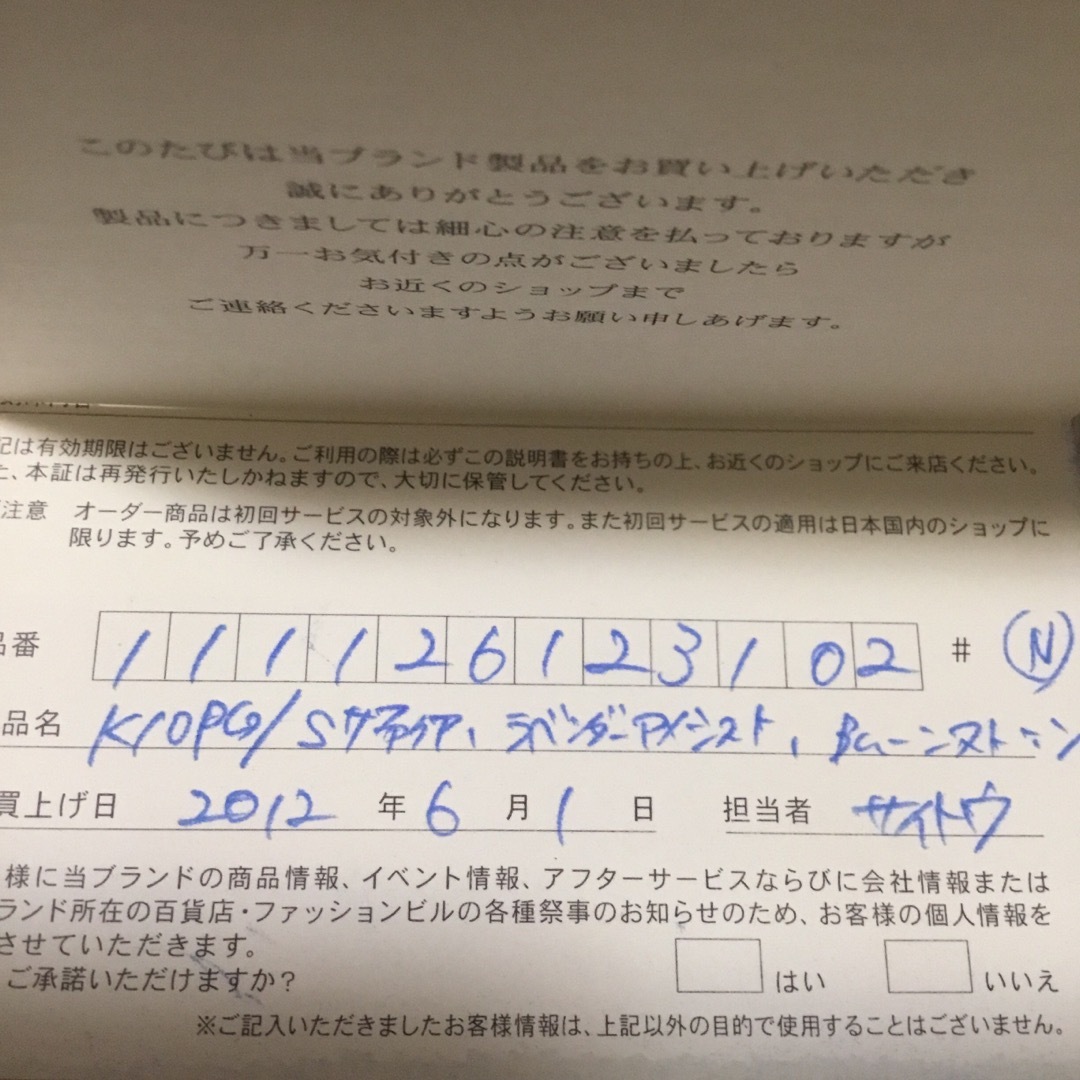 このたびは当ブランド製品をお買い上げいただき
誠にありがとうございます。
製品につきましては細心の注意を払っておりますが
万一お気付きの点がございましたら
お近くのショップまで
ご連絡くださいますようお願い申しあげます。
記は有効期限はございません。ご利用の際は必ずこの説明書をお持ちの上、お近くのショップにご来店ください。
た、本証は再発行いたしかねますので、大切に保管してください。
注意 オーダー商品は初回サービスの対象外になります。また初回サービスの適用は日本国内のショップに
限ります。予めご了承ください。
品番 111126123102 # Ⓝ
品名 K10PG/Sサファイア、ラベンダーアメジスト、Bムーンストーン
買上げ日 2012 年 6 月 1 日 担当者 サイトウ
様に当ブランドの商品情報、イベント情報、アフターサービスならびに会社情報または
ランド所在の百貨店・ファッションビルの各種祭事のお知らせのため、お客様の個人情報を
させていただきます。
ご承諾いただけますか? はい いいえ
※ご記入いただきましたお客様情報は、上記以外の目的で使用することはございません。